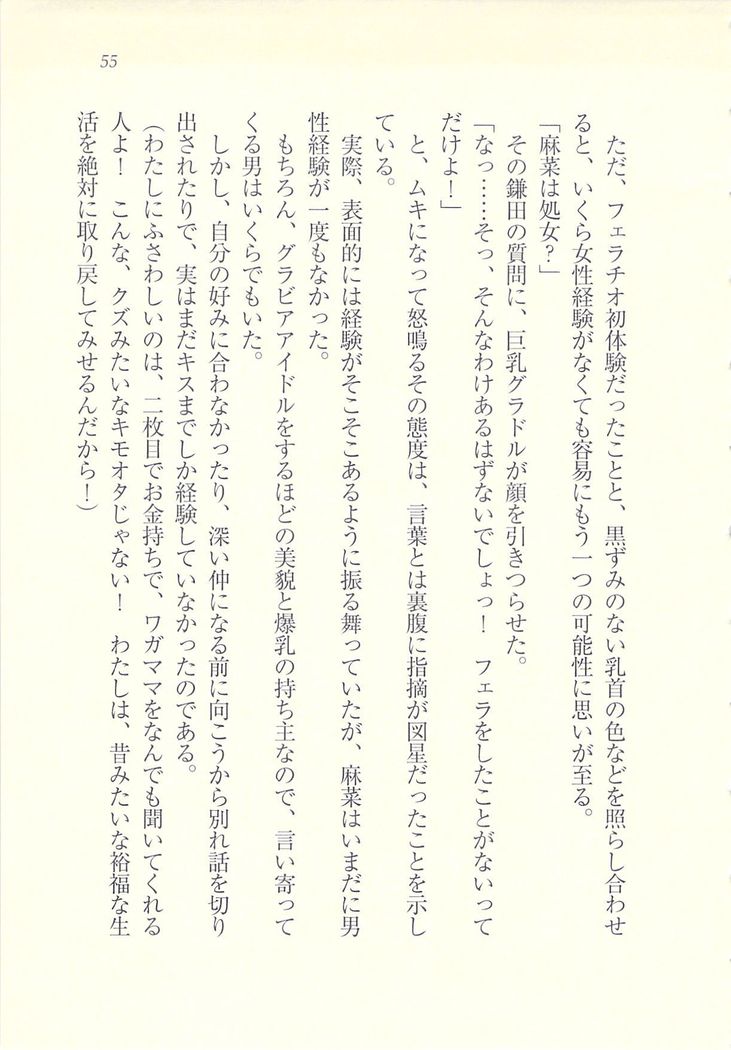 55
　ただ、フェラチオ初体験だったことと、黒ずみのない乳首の色などを照らし合わせ
ると、いくら女性経験がなくても容易にもう一つの可能性に思いが至る。
「麻菜は処女？」
　その鎌田の質問に、巨乳グラドルが顔を引きつらせた。
「なっ……そっ、そんなわけあるはずないでしょっ！　フェラをしたことがないって
だけよ！」
　と、ムキになって怒鳴るその態度は、言葉とは裏腹に指摘が図星だったことを示し
ている。
　実際、表面的には経験がそこそこあるように振る舞っていたが、麻菜はいまだに男
性経験が一度もなかった。
　もちろん、グラビアアイドルをするほどの美貌と爆乳の持ち主なので、言い寄って
くる男はいくらでもいた。
　しかし、自分の好みに合わなかったり、深い仲になる前に向こうから別れ話を切り
出されたりで、実はまだキスまでしか経験していなかったのである。
（わたしにふさわしいのは、二枚目でお金持ちで、ワガママをなんでも聞いてくれる
人よ！　こんな、クズみたいなキモオタじゃない！　わたしは、昔みたいな裕福な生
活を絶対に取り戻してみせるんだから！）